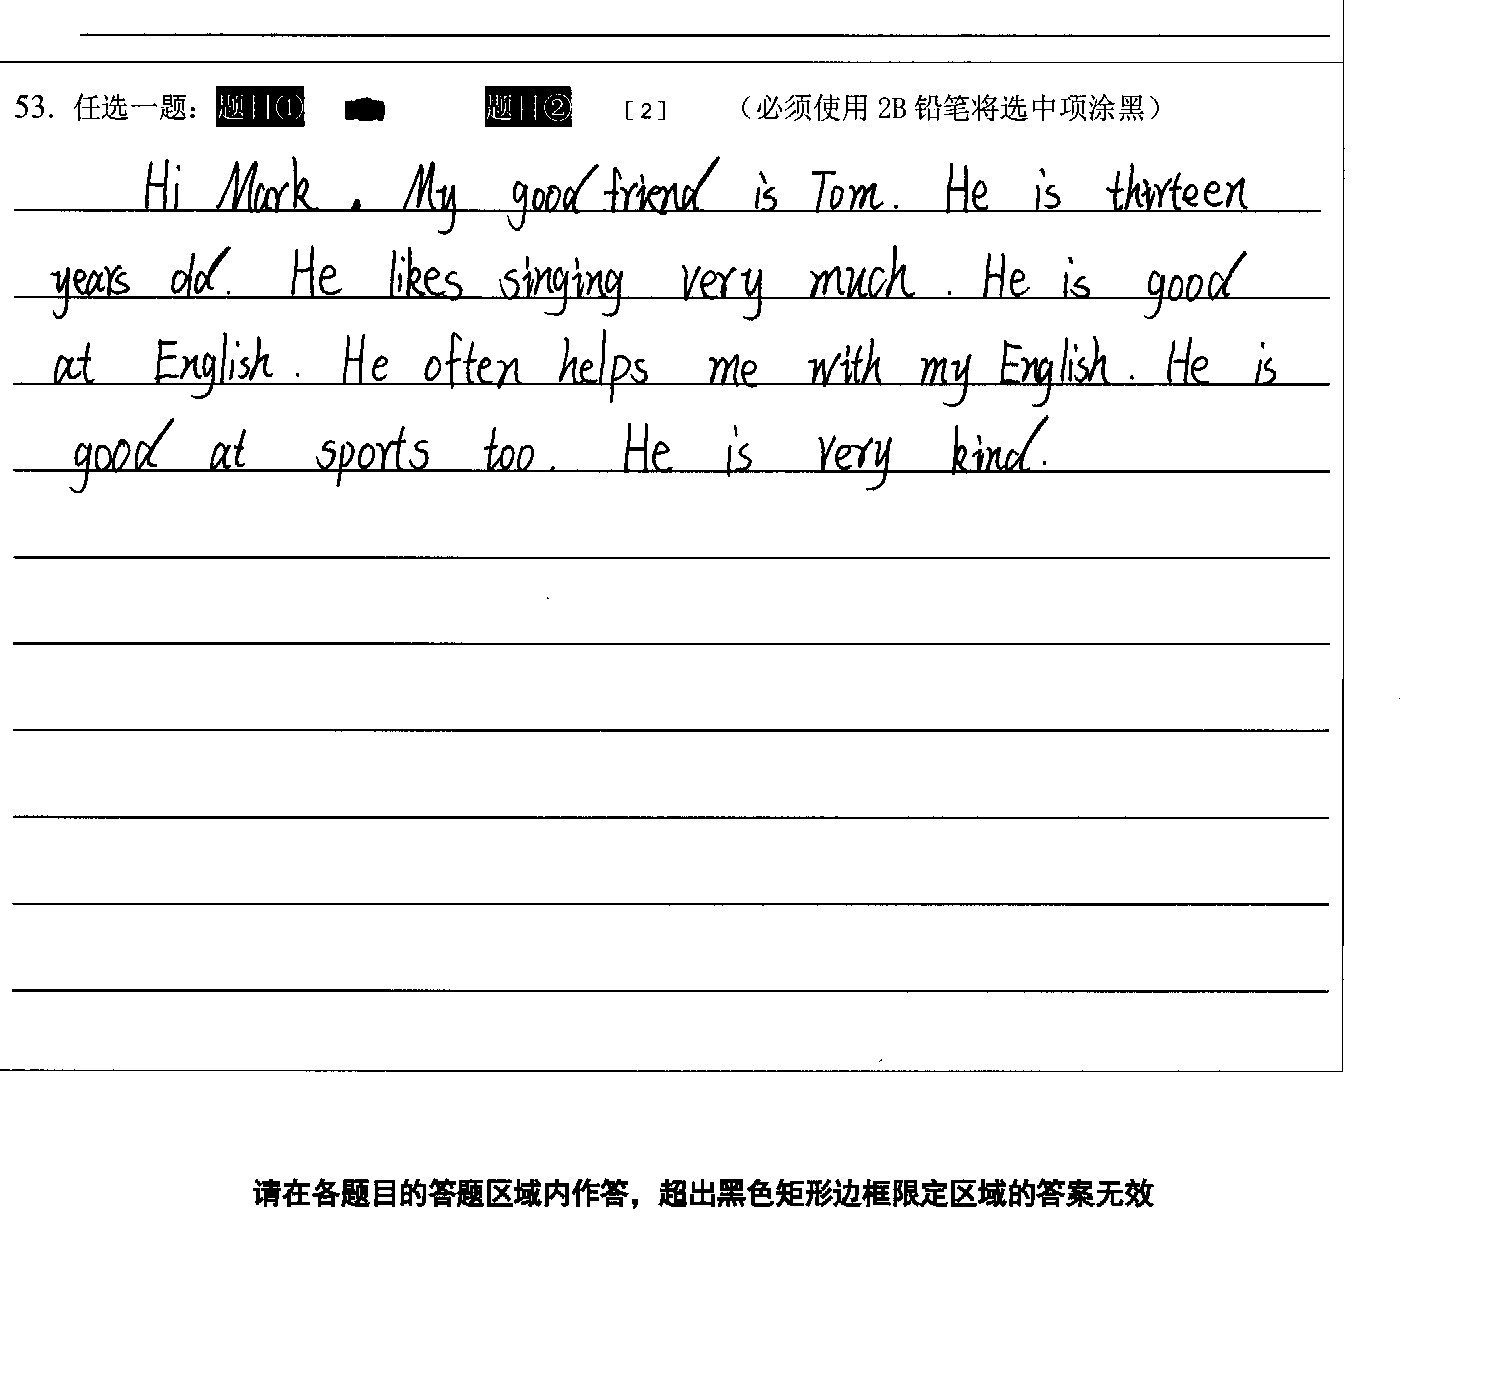 53. 任选一题： 题目① 题目② [2] （必须使用 2B 铅笔将选中项涂黑）
Hi Mark. My good friend is Tom. He is thirteen
years old. He likes singing very much. He is good
at English. He often helps me with my English. He is
good at sports too. He is very kind.
请在各题目的答题区域内作答，超出黑色矩形边框限定区域的答案无效